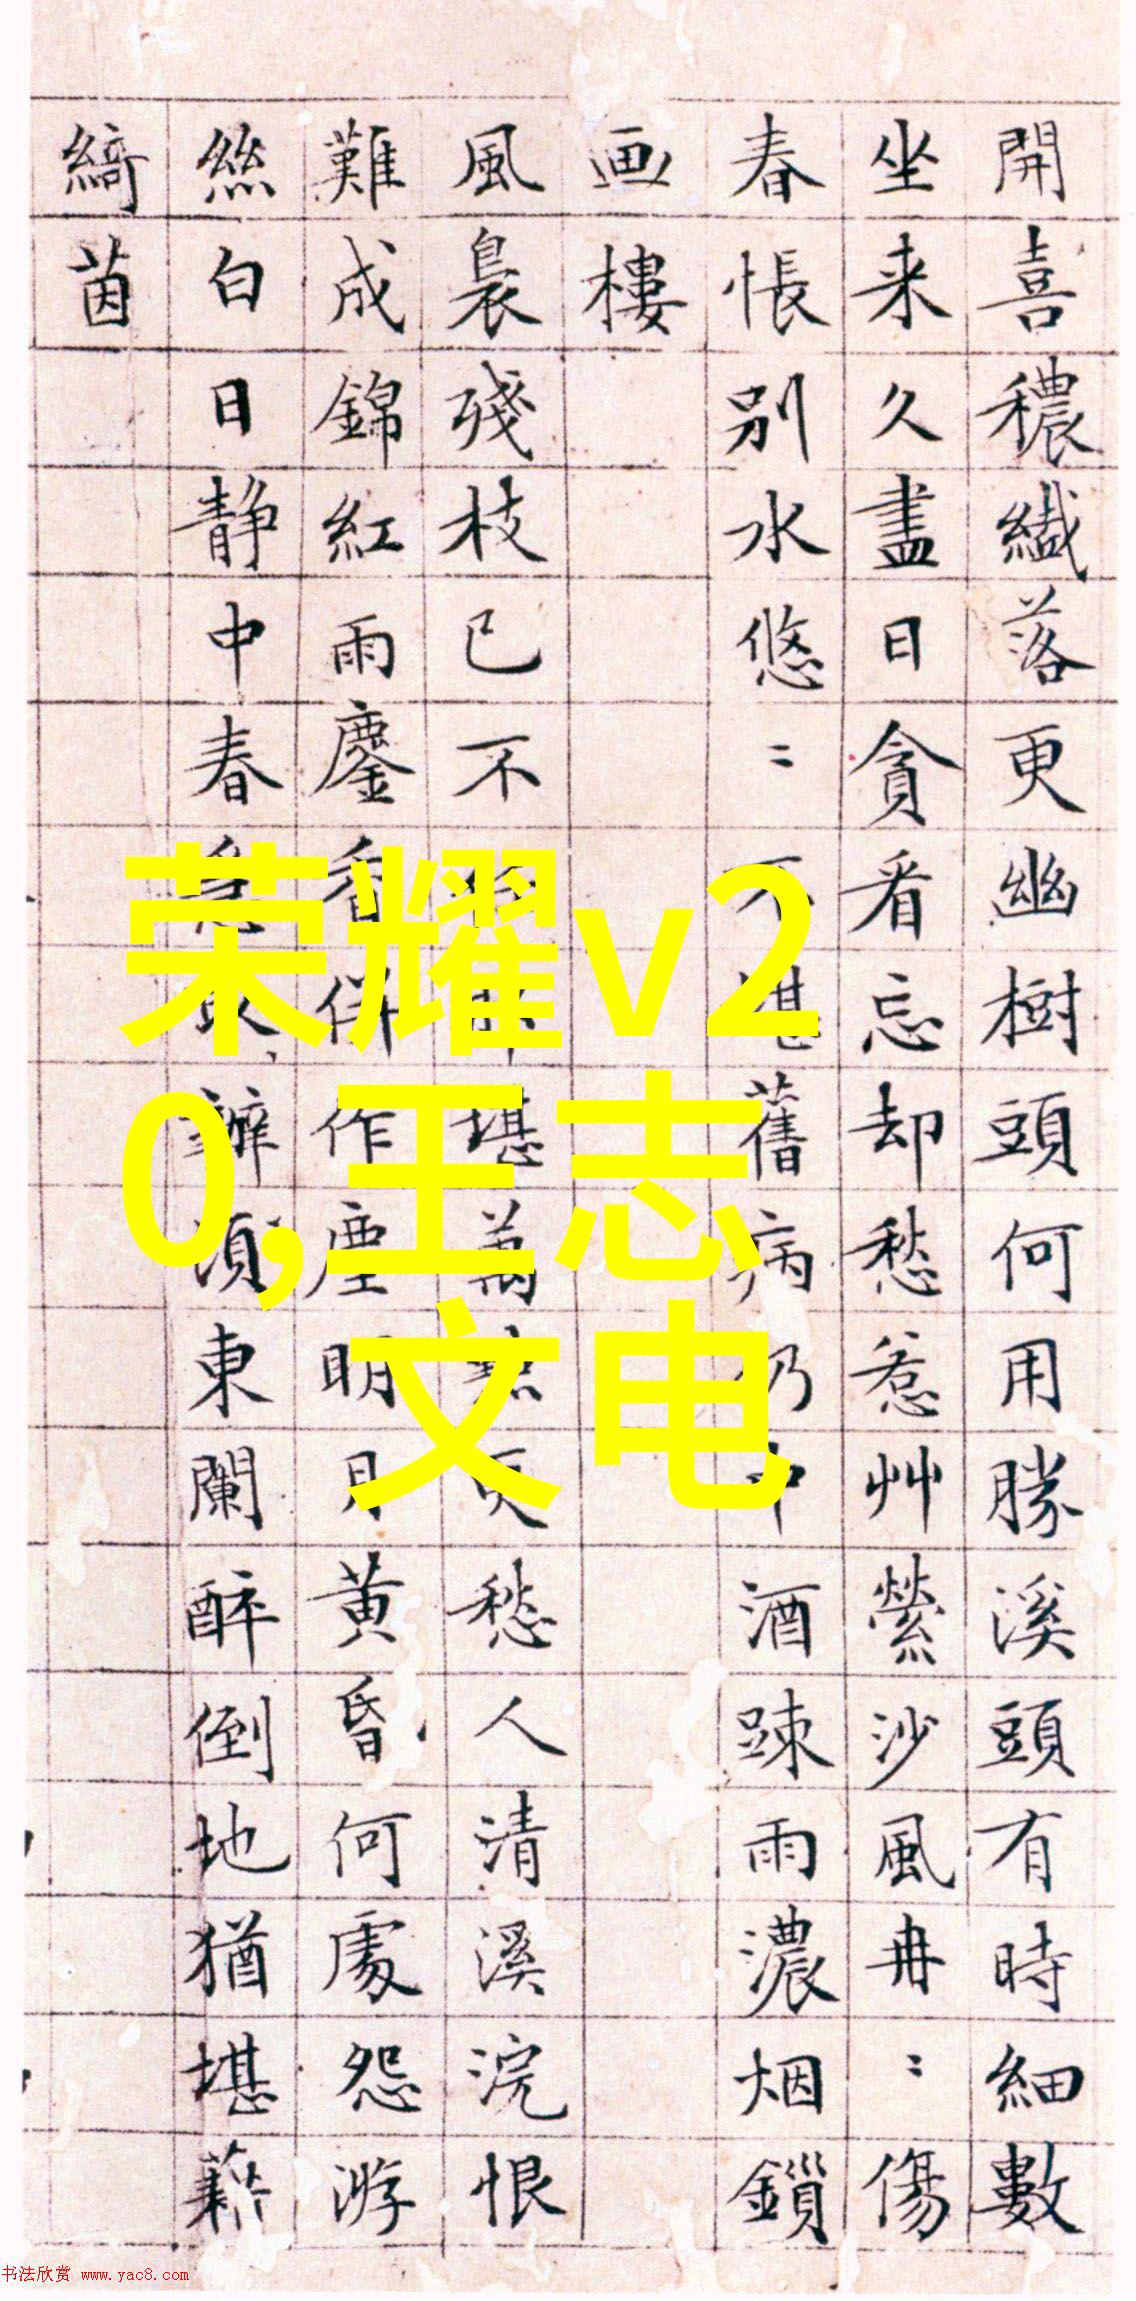 開喜穠纎落更幽樹頭何用勝溪頭有時細數
坐来久盡日貪看忘却愁惹艸縈沙風冉〻傷
春悵別水悠〻不堪舊病仍中酒踈雨濃烟鎖
画樓
風裊殘枝已不堪萬點更愁人清溪浣恨
難成錦紅雨鏖香併作塵明月黄昏何處怨游
絲白日靜中春急辦須東闌醉倒地猶堪藉
綺茵
荣耀v2
0,王志
文电
书法欣赏 www.yac8.com